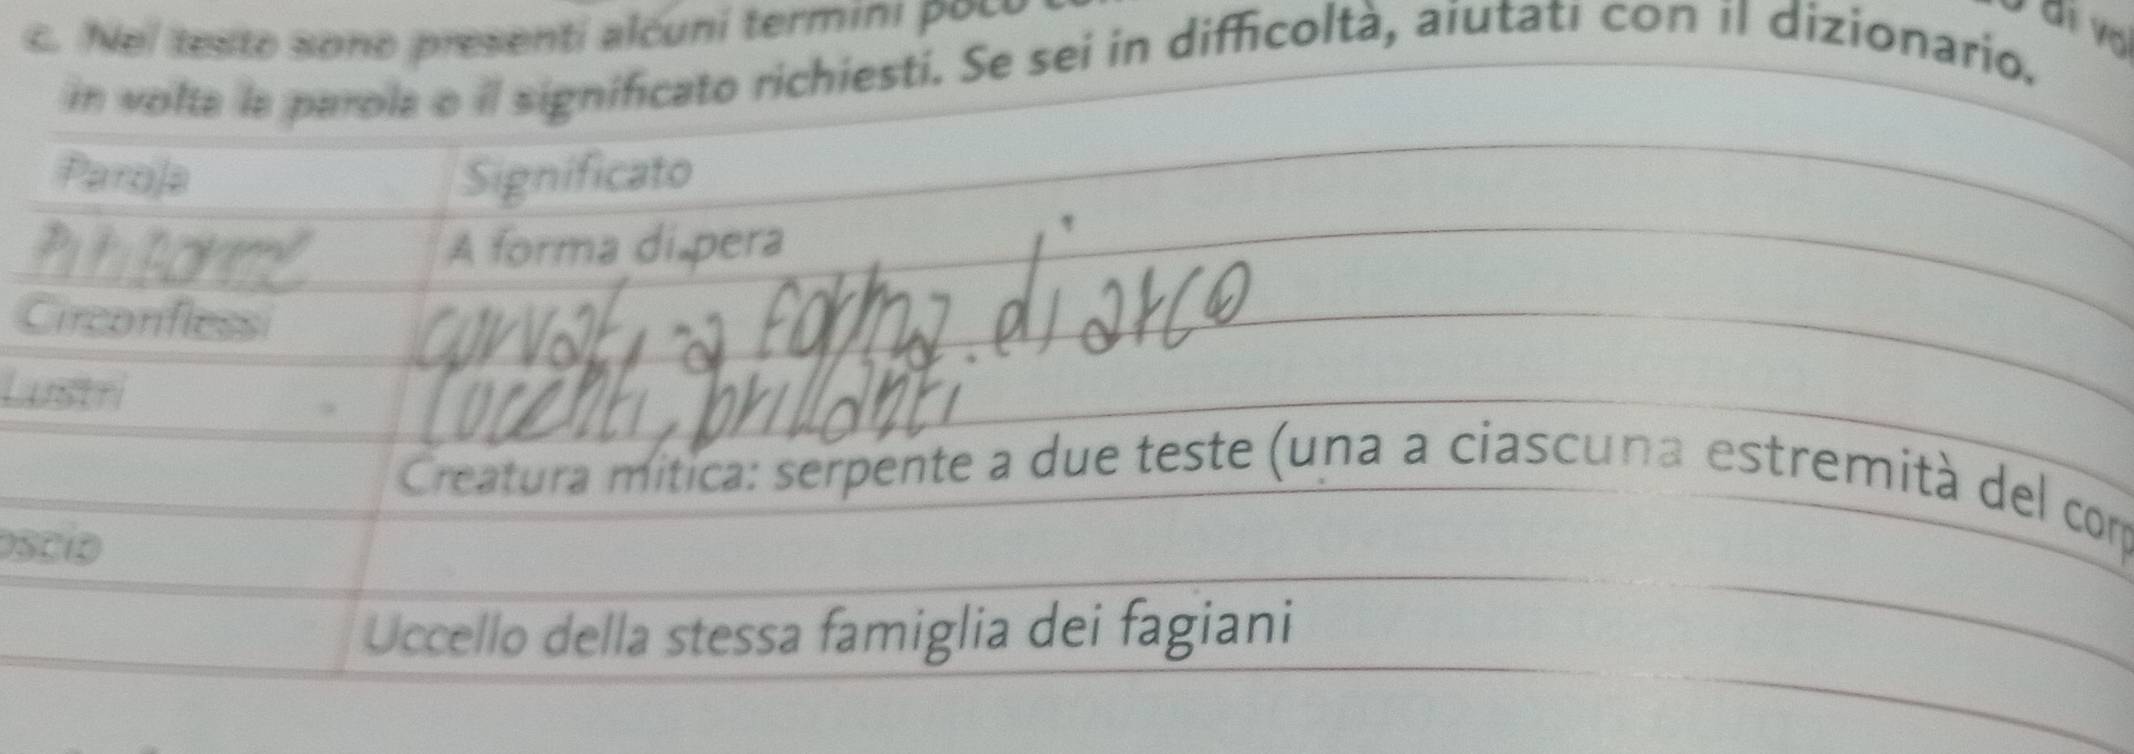 c. Nel testo sono presenti alcuni termini poco
di vol
in volta la parola o il significato richiesti. Se sei in difficoltà, aiutati con il dizionario.
Parola Significato
A forma di pera
Circonflessi curvati, a forma di arco
Lustri lucenti, brillanti
Creatura mitica: serpente a due teste (una a ciascuna estremità del corp
oscio
Uccello della stessa famiglia dei fagiani